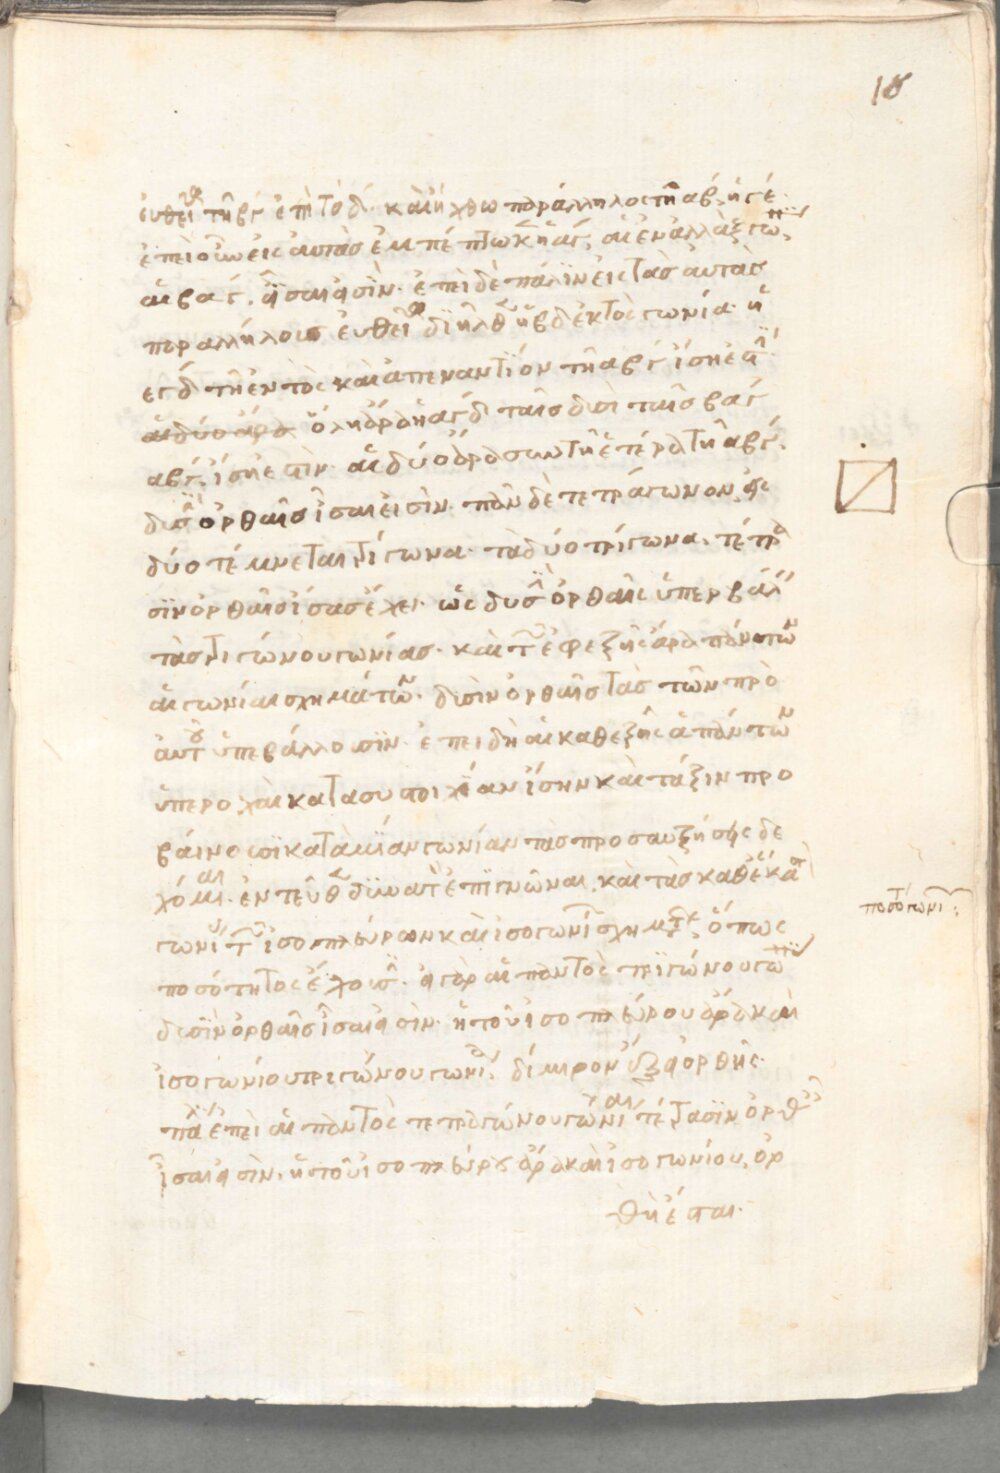 18
εὐθεῖα τῆ βγ ἐπὶ τὸ δ. καὶ ἤχθω παράλληλος τῆ αβ, ἡ γε.
ἐπεὶ οὖν εἰς αὐτὰς ἐμπέπτωκεν ἡ αγ, αἱ ἐναλλὰξ γων
αἱ βαγ, ἴσαι εἰσὶν. ἐπεὶ δὲ πάλιν εἰς τὰς αὐτὰς
παραλλήλους εὐθεῖα διῆλθεν ἡ βδ ἐκτὸς γωνία ἡ
εγδ τῆ ἐντὸς καὶ ἀπεναντίον τῆ αβγ ἴση ἐστὶ
ὅλη ἄρα ἡ αγδ ταῖς δυσὶ ταῖς βαγ
αβγ, ἴση ἐστὶν. αἱ δύο ἄρα σὺν τῆ ἑτέρα τῆ αβγ,
δυσὶν ὀρθαῖς ἴσαι εἰσὶν. πᾶν δὲ τετράγωνον εἰς
δύο τέμνεται τρίγωνα. τὰ δύο τρίγωνα, τέτρα
σιν ὀρθαῖς ἴσας ἔχει. ὡς δυσὶν ὀρθαῖς ὑπερβάλ
τὰς τριγώνου γωνίας. καὶ τῶν ἐφεξῆς ἄρα πάντων
αἱ γωνίαι σχημάτων. δυσὶν ὀρθαῖς τὰς τῶν πρὸ
αὐτοῦ ὑπερβάλλουσιν. ἐπειδὴ αἱ καθεξῆς ἁπάντων
ὑπεροχαὶ κατὰ συστοιχίαν ἴσην καὶ τάξιν προ
βαίνουσι κατὰ μίαν γωνίαν τὰς προσαυξήσεις δε
χόμεναι. ἐντεῦθεν δυνατὸν ἐπιγνῶναι, καὶ τὰς καθ' ἕκαστα
γωνίας τῶν ἰσοπλεύρων καὶ ἰσογωνίων σχημάτων, ὅπως
ποσότητος ἔχουσι. εἰ γὰρ αἱ παντὸς τριγώνου γων
δυσὶν ὀρθαῖς ἴσαι εἰσὶν. ἡ τοῦ ἰσοπλεύρου ἄρα καὶ
ἰσογωνίου τριγώνου γωνία, δίμοιρον ἕξει ὀρθῆς.
πάλιν ἐπεὶ αἱ παντὸς τετραγώνου γωνίαι τέτρασιν ὀρθαῖς
ἴσαι εἰσὶν. ἡ τοῦ ἰσοπλεύρου ἄρα καὶ ἰσογωνίου, ὀρ
θὴ ἔσται.